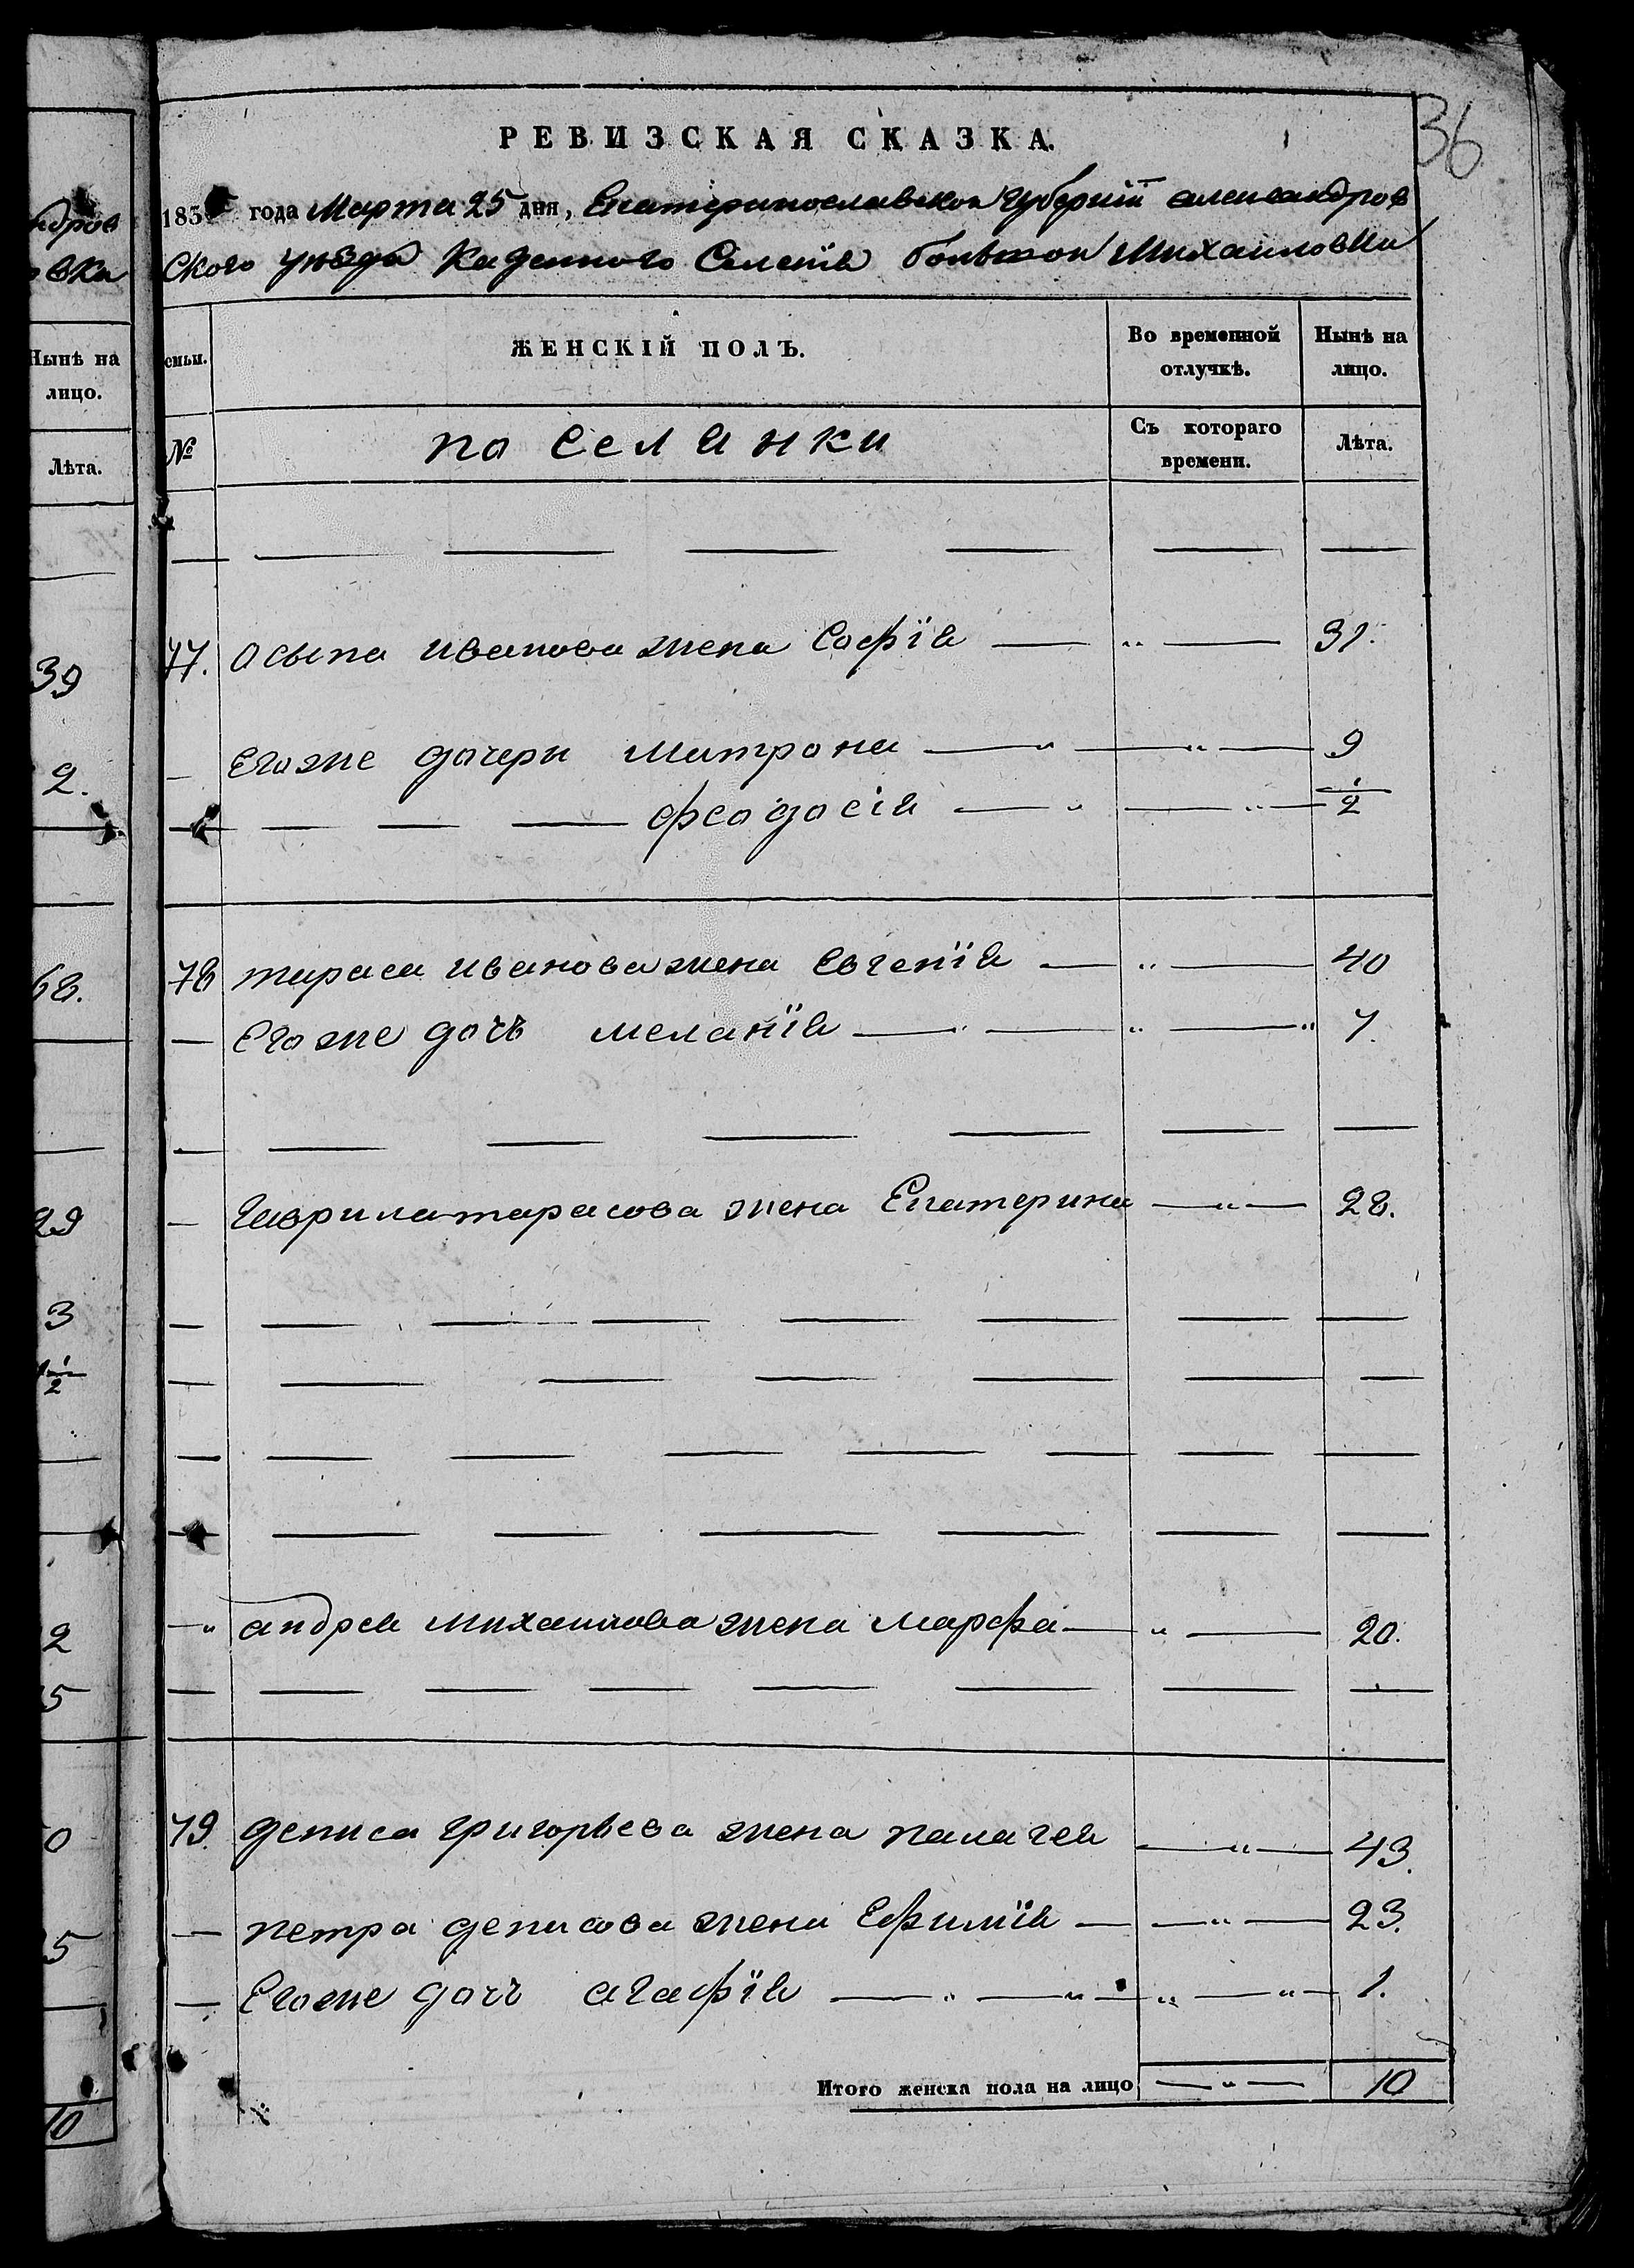 36
РЕВИЗСКАЯ СКАЗКА.
185 года Марта 25 дня, Екатеринославской Губернии александров
ского уѣзда Казенного Селенія большой Михаиловки
ндров
овка
Нынѣ на
лицо.
Лѣта.
39
2.
68.
29
3
1/2
2
5
0
5
10
емьи.
ЖЕНСКІЙ ПОЛЪ.
Во временной отлучкѣ.
Нынѣ на лицо.
№
поселянки
Съ котораго времени.
Лѣта.
77. осыпа иванова жена Софія — " — 31.
— Егоже дочери матрона — " — " — 9
— — — — феодосія — " — " — 1/2
78 тараса иванова жена Евгенія — " — 40
— Егоже дочь меланія — " — " — " 7.
— Гаврила тарасова жена Екатерина — " — 28.
— " андрея михаилова жена марфа — " — 20.
79. дениса григорьева жена палагея — " — 43.
— петра денисова жена Ефимія — — " — 23.
— Егоже дочь агафія — " — " — " — " — 1.
Итого женска пола на лицо — " — 10